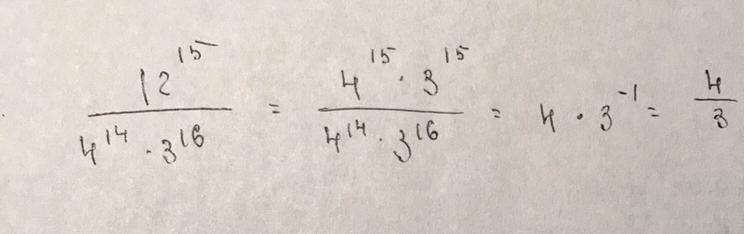 12^15 / (4^14 · 3^16) = (4^15 · 3^15) / (4^14 · 3^16) = 4 · 3^-1 = 4/3